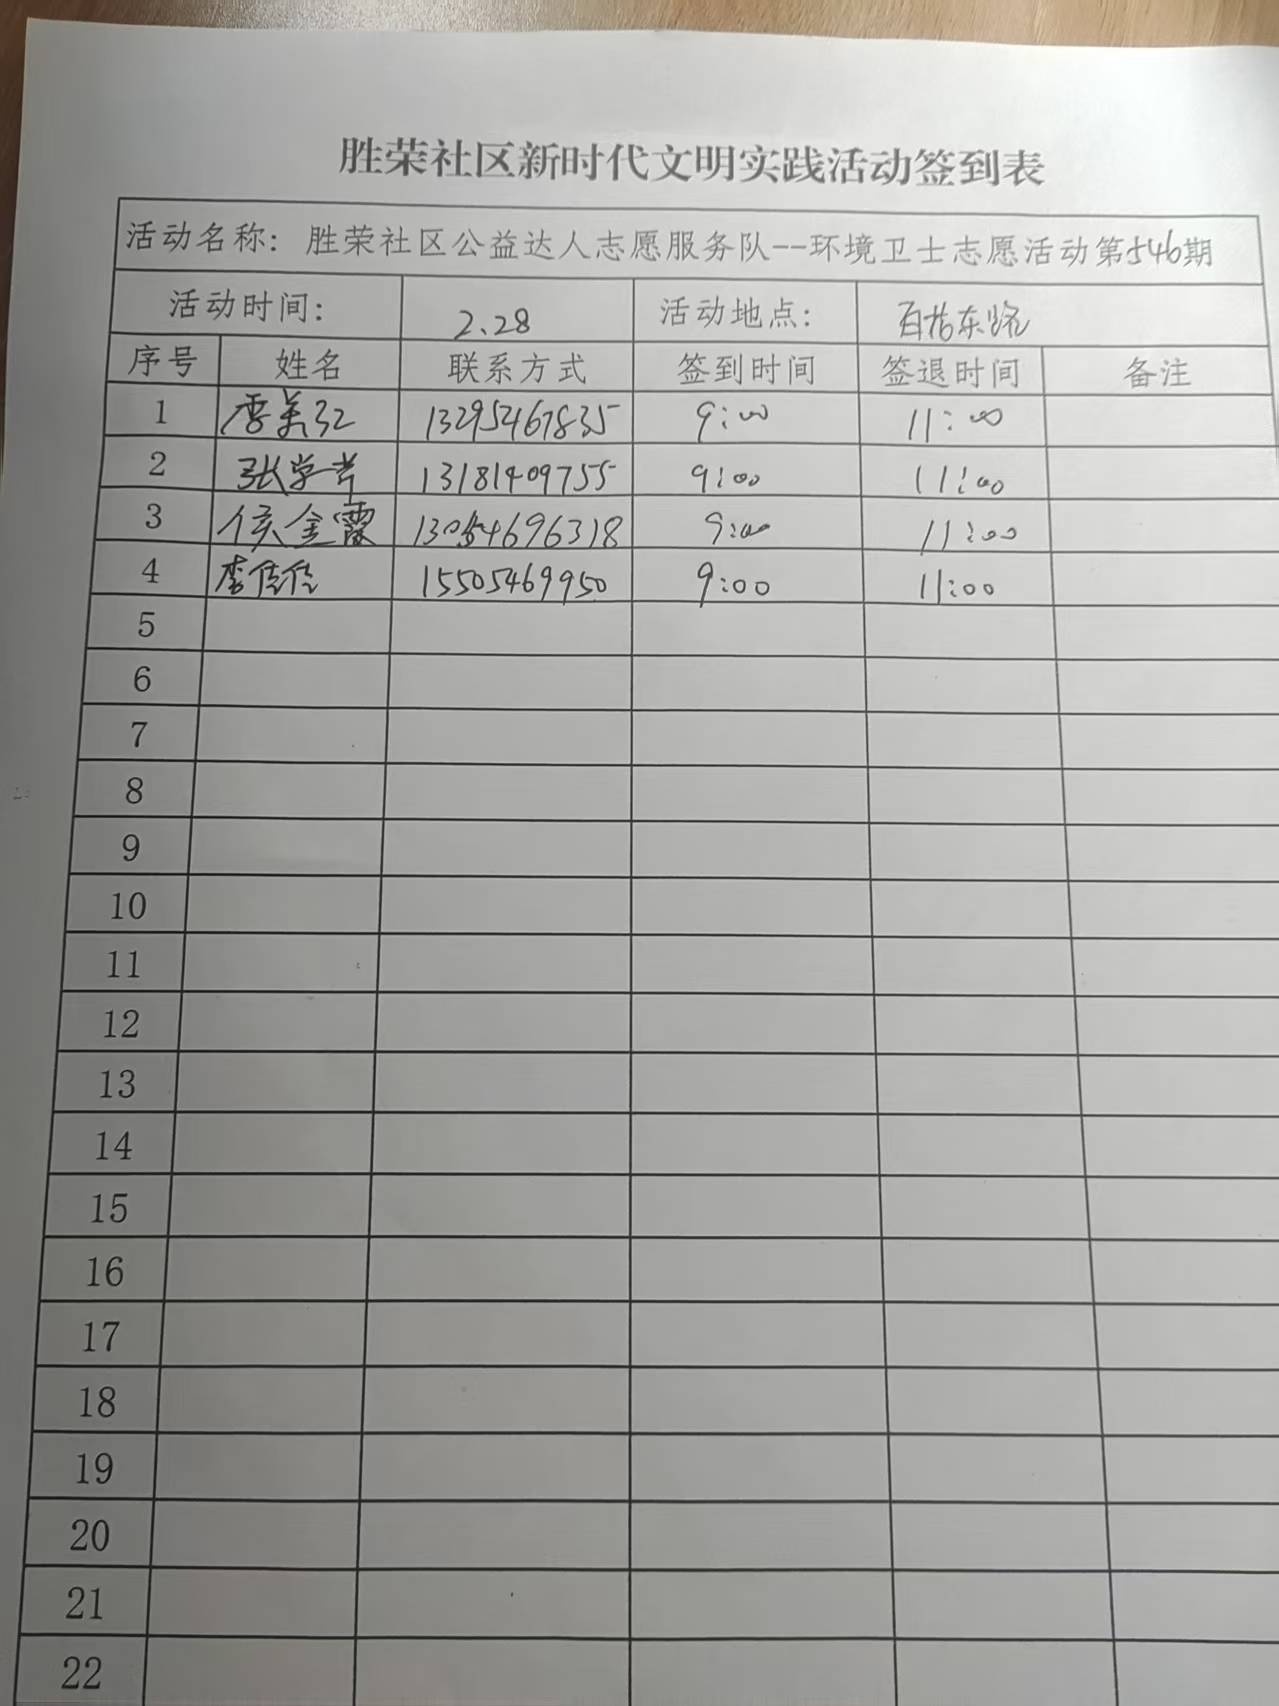 胜荣社区新时代文明实践活动签到表
活动名称：胜荣社区公益达人志愿服务队--环境卫士志愿活动第546期
活动时间： 2.28 活动地点： 东路
序号 姓名 联系方式 签到时间 签退时间 备注
1 李美红 13295467835 9:00 11:00
2 张学 13181409755 9:00 11:00
3 侯金霞 13054696318 9:00 11:00
4 李佳佳 15505469950 9:00 11:00
5
6
7
8
9
10
11
12
13
14
15
16
17
18
19
20
21
22